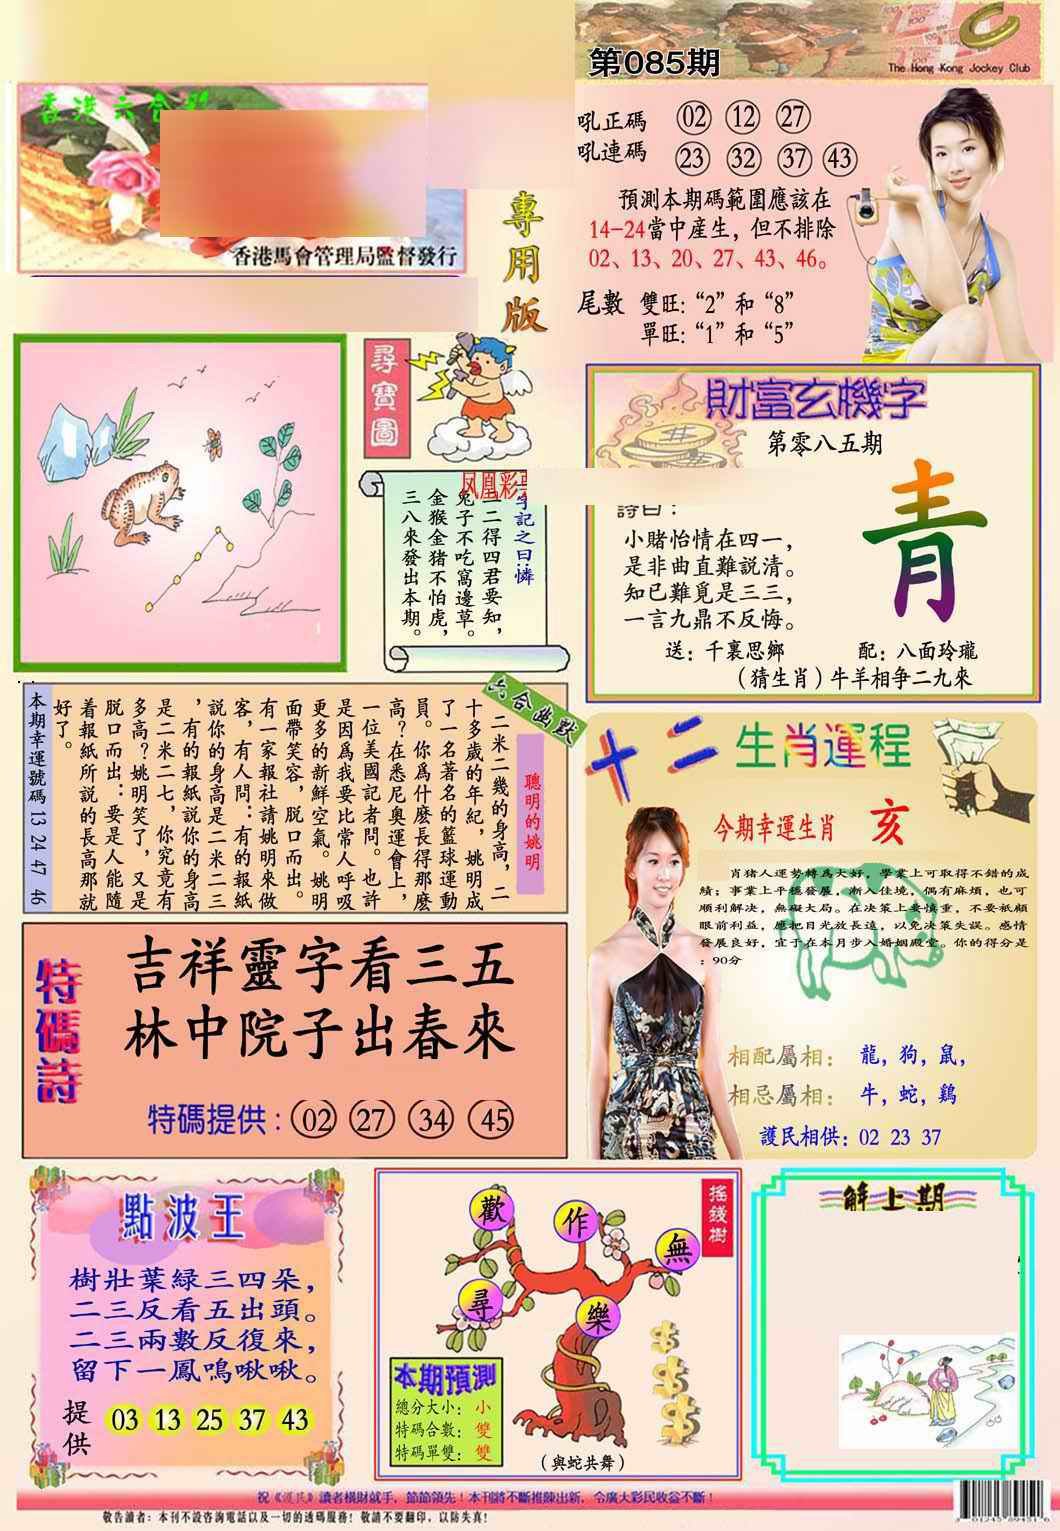 第085期
The Hong Kong Jockey Club
香港六合彩
香港馬會管理局監督發行
專用版
吼正碼 02 12 27
吼連碼 23 32 37 43
預測本期碼範圍應該在
14-24當中産生，但不排除
02、13、20、27、43、46。
尾數 雙旺：“2”和“8”
單旺：“1”和“5”
尋寶圖
凤凰彩
字記之曰：憐
二得四君要知，
兔子不吃窩邊草。
金猴金猪不怕虎，
三八來發出本期。
財富玄機字
第零八五期
詩曰：
小賭怡情在四一，
是非曲直難説清。
知已難覓是三三，
一言九鼎不反悔。
青
送：千裏思鄉
配：八面玲瓏
（猜生肖）牛羊相争二九來
六合幽默
聰明的姚明
二米二幾的身高，二
十多歲的年紀，姚明成
了一名著名的籃球運動
員。你爲什麽長得那麽
高？在悉尼奥運會上，
一位美國記者問。也許
是因爲我要比常人呼吸
更多的新鮮空氣。姚明
面帶笑容，脱口而出。
有一家報社請姚明來做
客，有人問：有的報紙
説你的身高是二米二三
，有的報紙説你的身高
是二米二七，你究竟有
多高？姚明笑了，又是
脱口而出：要是人能隨
着報紙所説的長高那就
好了。
本期幸運號碼 13 24 47 46
十二生肖運程
今期幸運生肖 亥
肖猪人運势轉爲大好，學業上可取得不錯的成
績；事業上平穩發展，漸入佳境，偶有麻煩，也可
順利解决，無礙大局。在决策上要慎重，不要衹顧
眼前利益，應把目光放長遠，以免决策失誤。感情
發展良好，宜于在本月步入婚姻殿堂。你的得分是
：90分
相配屬相：龍，狗，鼠，
相忌屬相：牛，蛇，鷄
護民相供：02 23 37
特碼詩
吉祥靈字看三五
林中院子出春來
特碼提供：02 27 34 45
點波王
樹壯葉緑三四朵，
二三反看五出頭。
二三兩數反復來，
留下一鳳鳴啾啾。
提供 03 13 25 37 43
摇錢樹
歡
作
無
尋
樂
本期預測
總分大小：小
特碼合數：雙
特碼單雙：雙
（與蛇共舞）
解上期
祝《護民》讀者横財就手，節節領先！本刊將不斷推陳出新，令廣大彩民收益不斷！
敬告讀者：本刊不設咨詢電話以及一切的透碼服務！敬請不要翻印，以防失真！